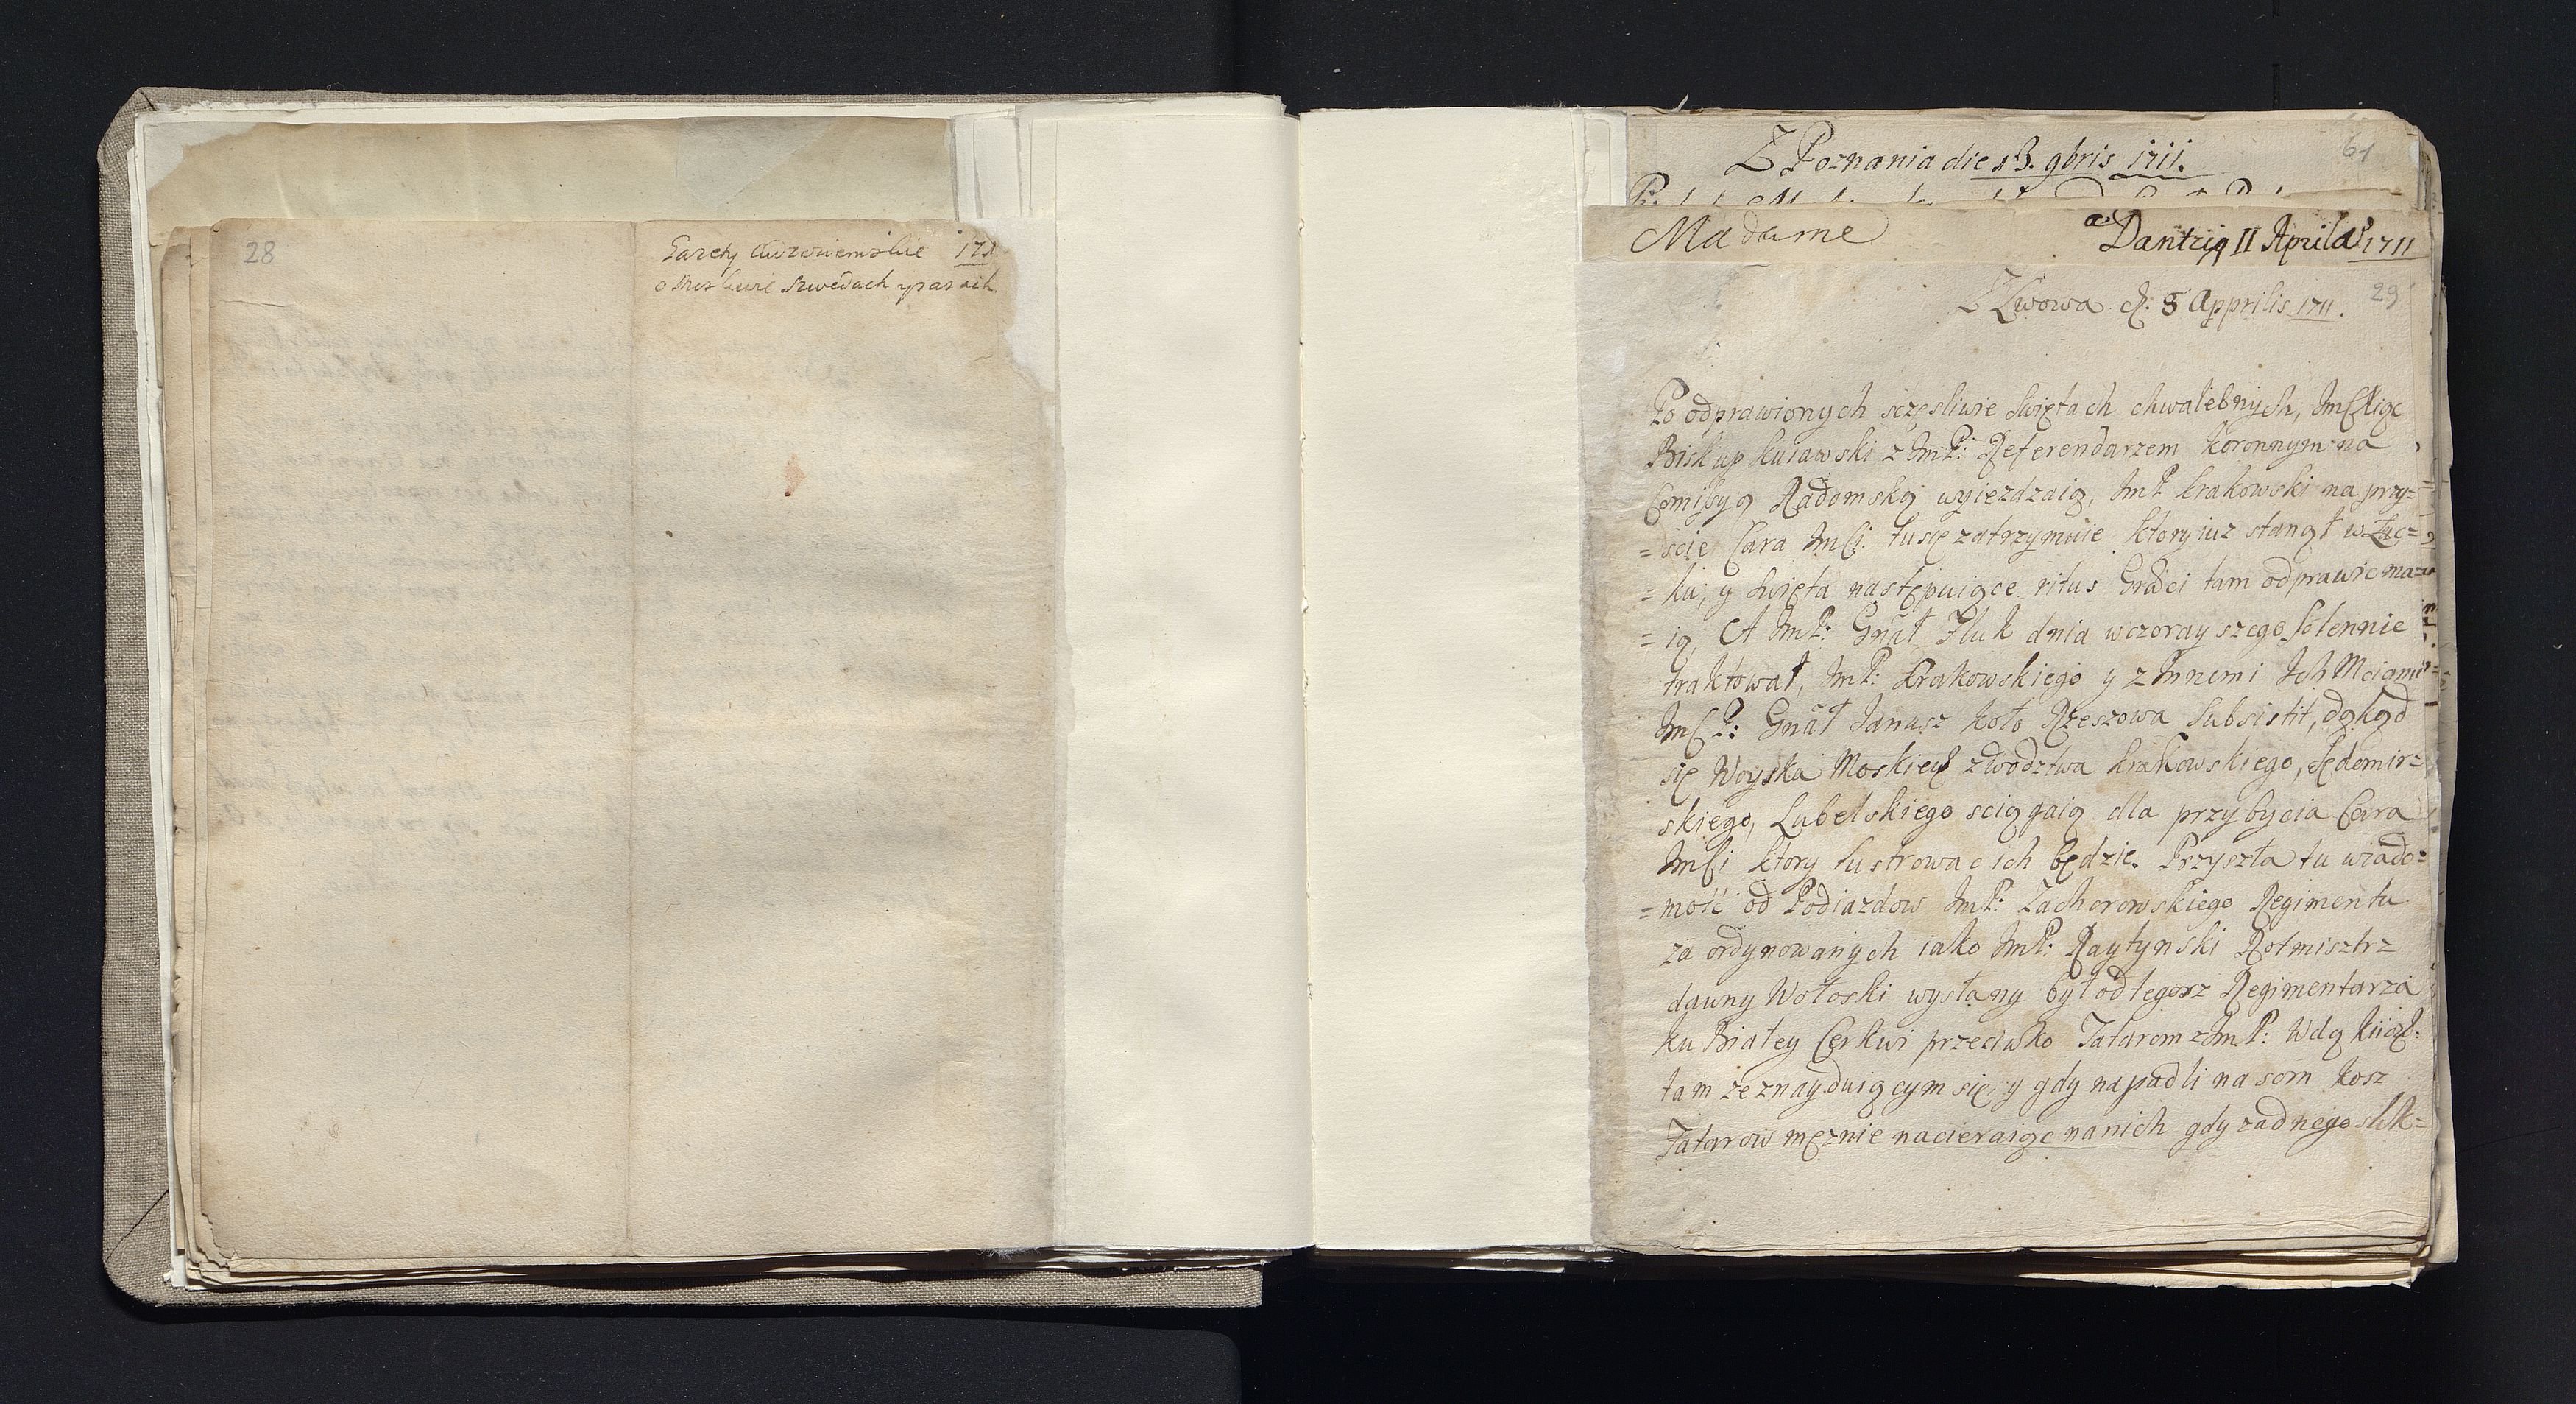 28
Gazety Cudzoziemskie 1711
o Moskwie Szwedach y
Z Poznania die 13. 9bris 1711.
61
Madame
a Dantzig II Aprilas 1711
Z Lwowa d: 8 Apprilis 1711.
29
Po odprawionych sczęsliwie swiętach chwalebnych,
Biskup kuiawski z ImP: Referendarzem koronnym na
Comissyą Radomską wyiezdzaią, ImP krakowski na przy=
=scie Cara ImCi. tu się zatrzymuie ktory iuz stanął w Łuc=
=ku, y swięta następuiące ritus Graeci tam odprawic ma=
=ią, A ImP: Gnãł Fluk dnia wczorayszego solennie
traktował, ImP: Krakowskiego y z Innemi Ich Mciami
ImCP: Gnãł Janusz koło Rzeszowa subsistit, dokąd
się Woyska Moskiew zwodztwa krakowskiego, Sędomir=
skiego, Lubelskiego sciągaią dla przybycia Cara
ImCi ktory lustrowac ich będzie. Przyszła tu wiado=
=mość od Podiazdow ImP: Zachorowskiego Regimentu
za ordynowanych iako ImP: Raytynski Rotmisztrz
dawny Wołoski wysłany był od tegosz Regimentarza
ku Białey Cerkwi przeciwko Tatarom z ImP: Wdą
tam ze znayduiącym się, y gdy napadli na som kosz
Tatarow męznie nacieraiąc na nich gdy zadnego